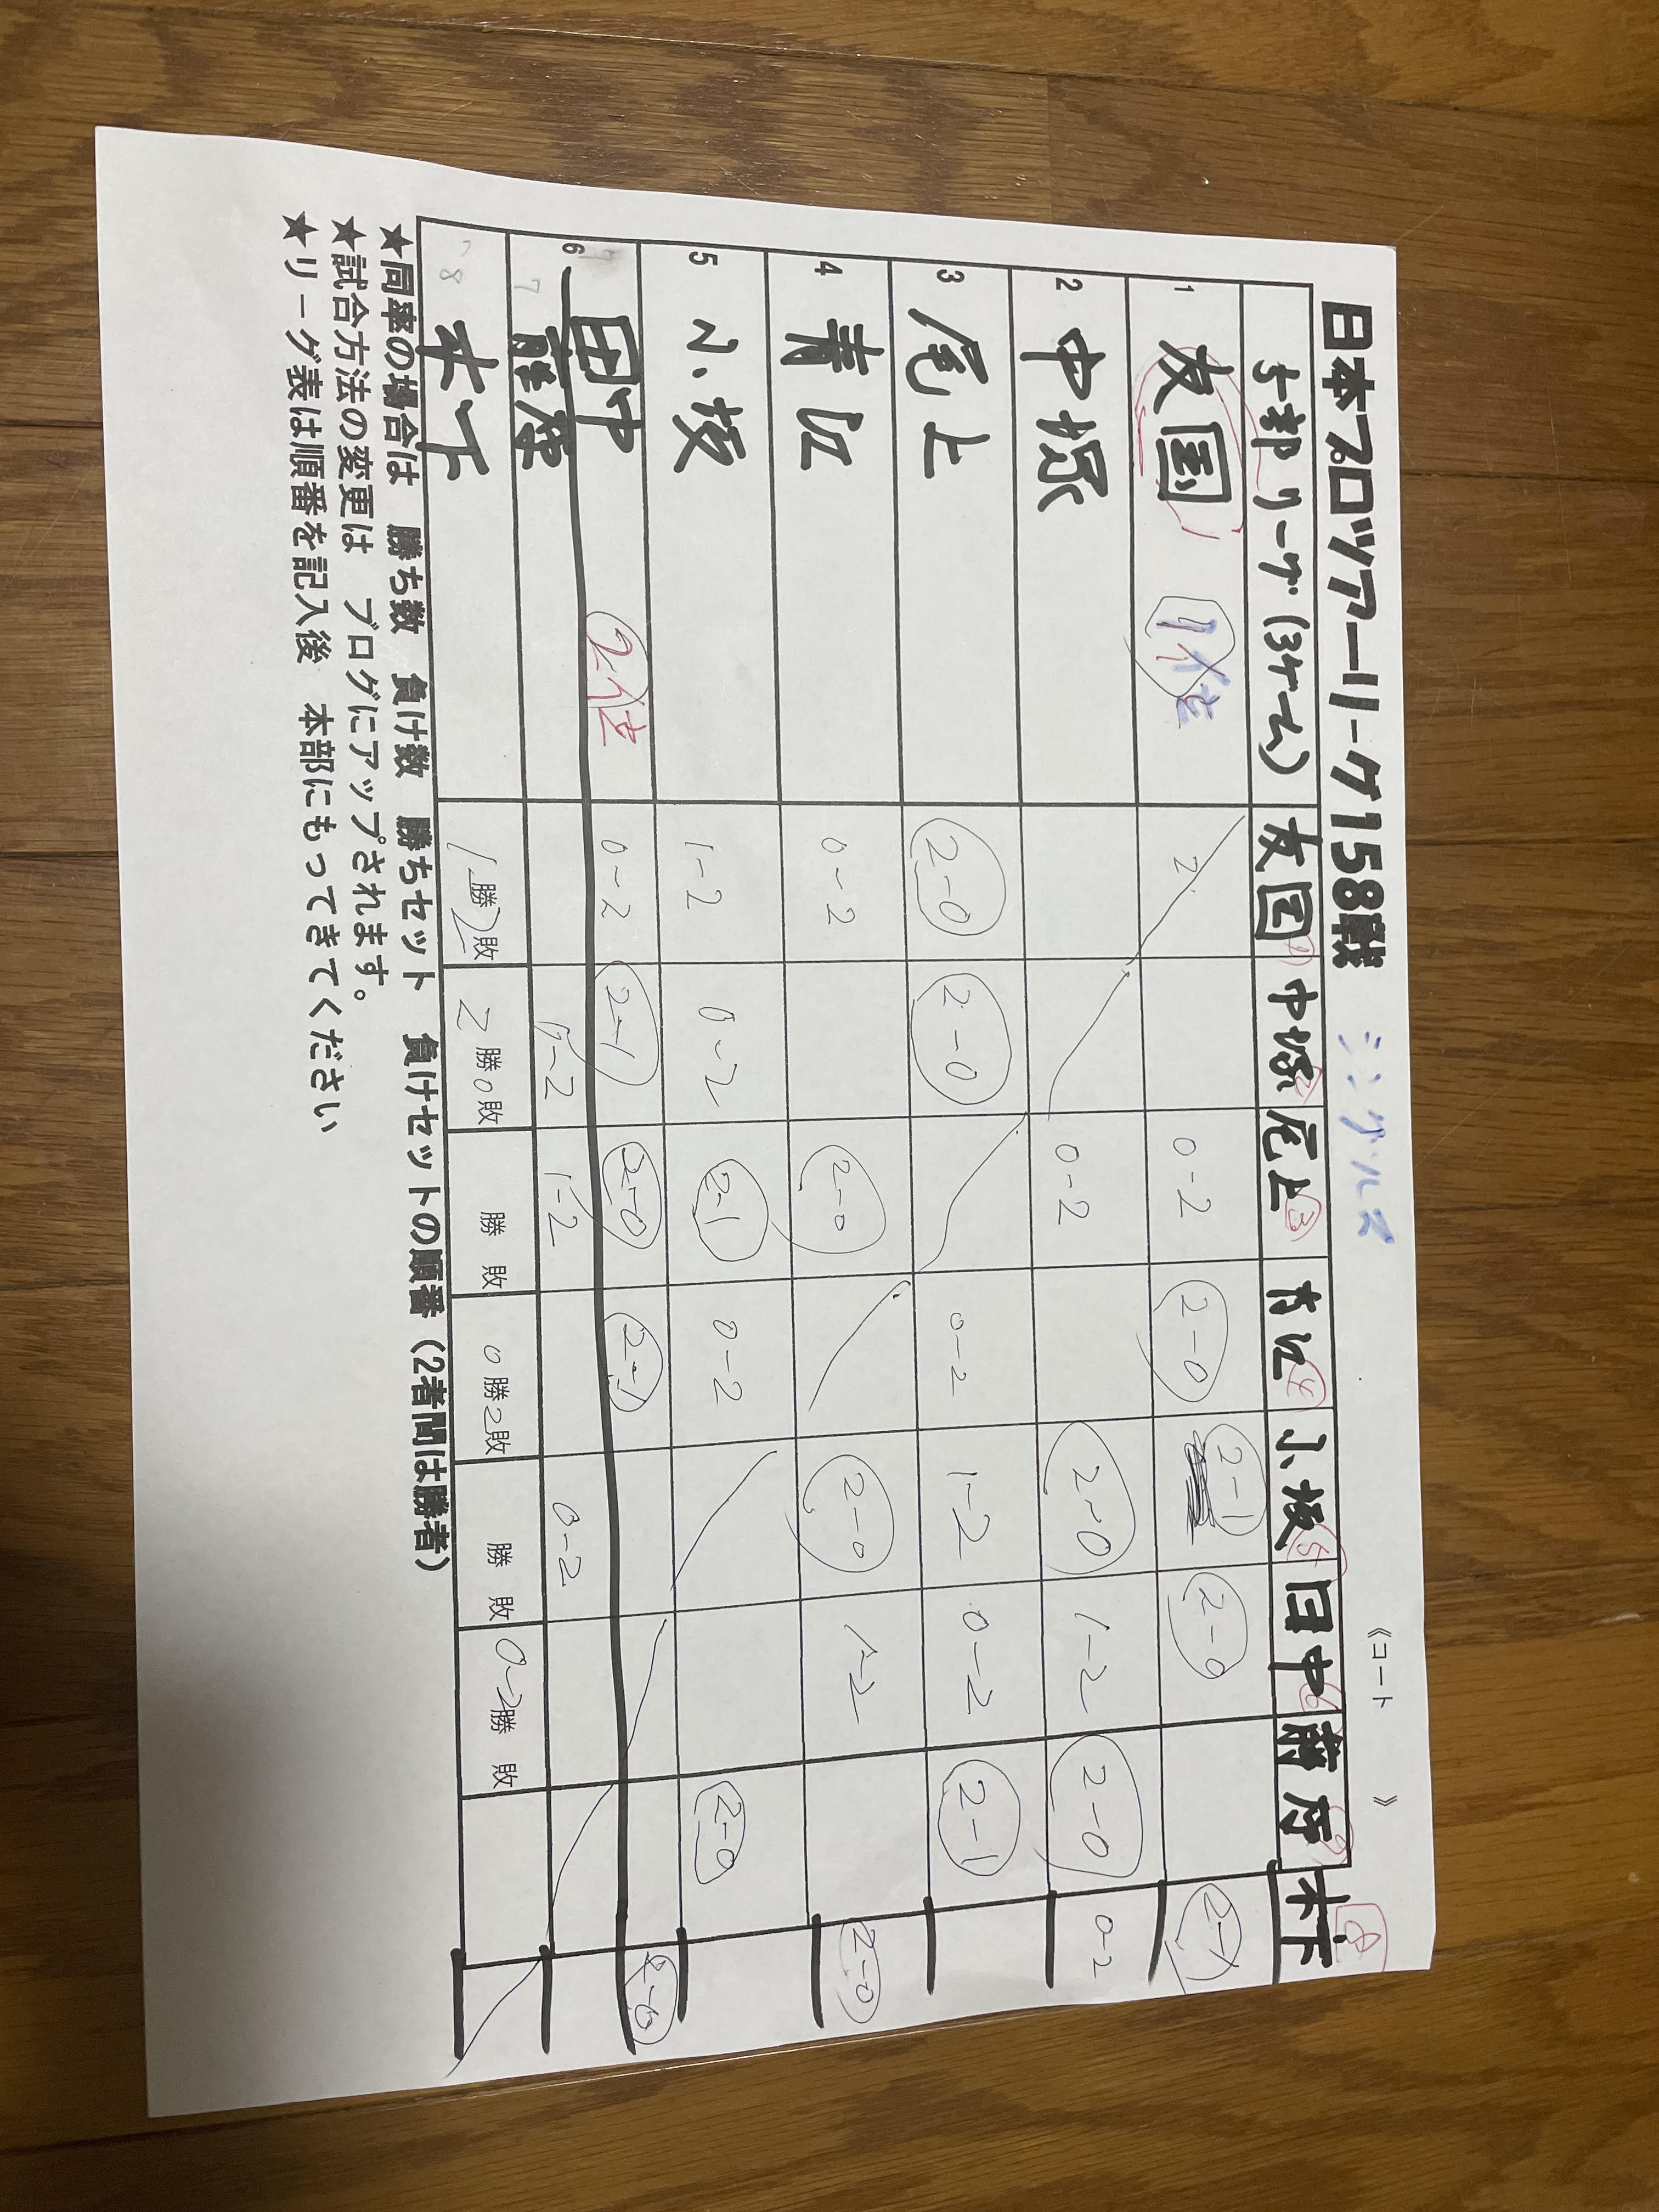 日本プロツアーリーグ158戦 シングルス 《コート 》
リーグ(3ゲーム) 友国 1 中塚 2 尾上 3 青江 4 小坂 5 田中 6 7 木下 8
1 友国 1位 2 0-2 2-0 2-1 2-0 2-1
2 中塚 0-2 2-0 1-2 2-0 0-2
3 尾上 2-0 2-0 0-2 1-2 0-2 2-1
4 青江 0-2 2-0 2-0 1-2 2-0
5 小坂 1-2 0-2 2-1 0-2 2-0
6 田中 2位 0-2 2-1 2-0 2-1 2-0
7 0-2 1-2 0-2
8 木下 1勝2敗 2勝0敗 勝 敗 0勝2敗 勝 敗 0-2勝 敗
★同率の場合は 勝ち数 負け数 勝ちセット 負けセットの順番(2者間は勝者)
★試合方法の変更は ブログにアップされます。
★リーグ表は順番を記入後 本部にもってきてください